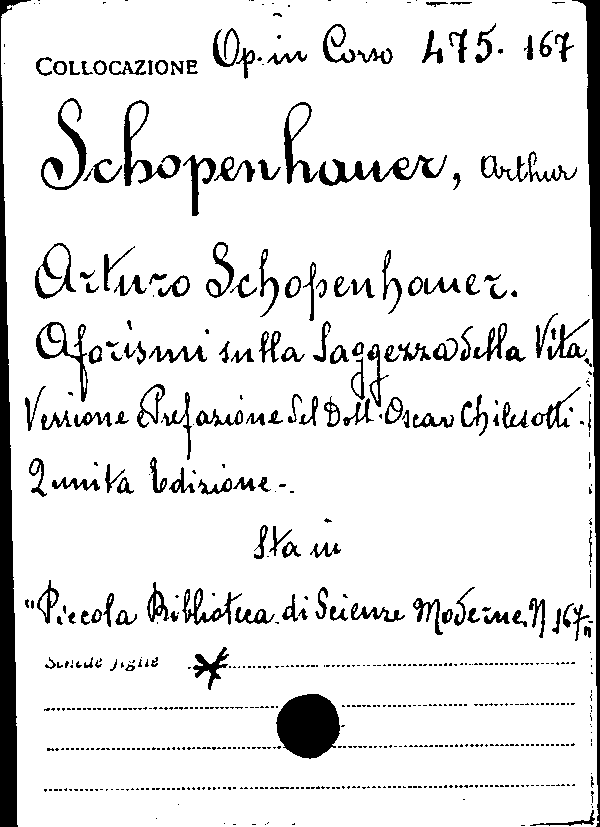 COLLOCAZIONE Op. in Corso 475. 167
Schopenhauer, Arthur
Arturo Schopenhauer.
Aforismi sulla Saggezza della Vita.
Versione e Prefazione del Dott. Oscar Chilesotti.
Quinta Edizione.-
Sta in
"Piccola Biblioteca di Scienze Moderne. N 167."
Schede figlie